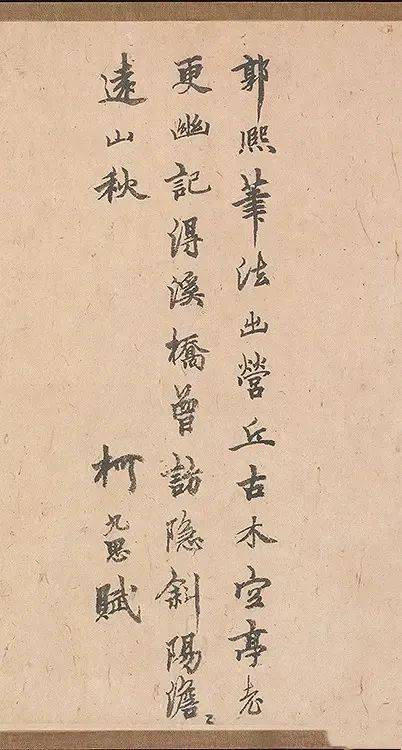 郭熙筆法出營丘古木空亭老
更幽記得溪橋曾訪隱斜陽澹〻
遠山秋　柯九思賦